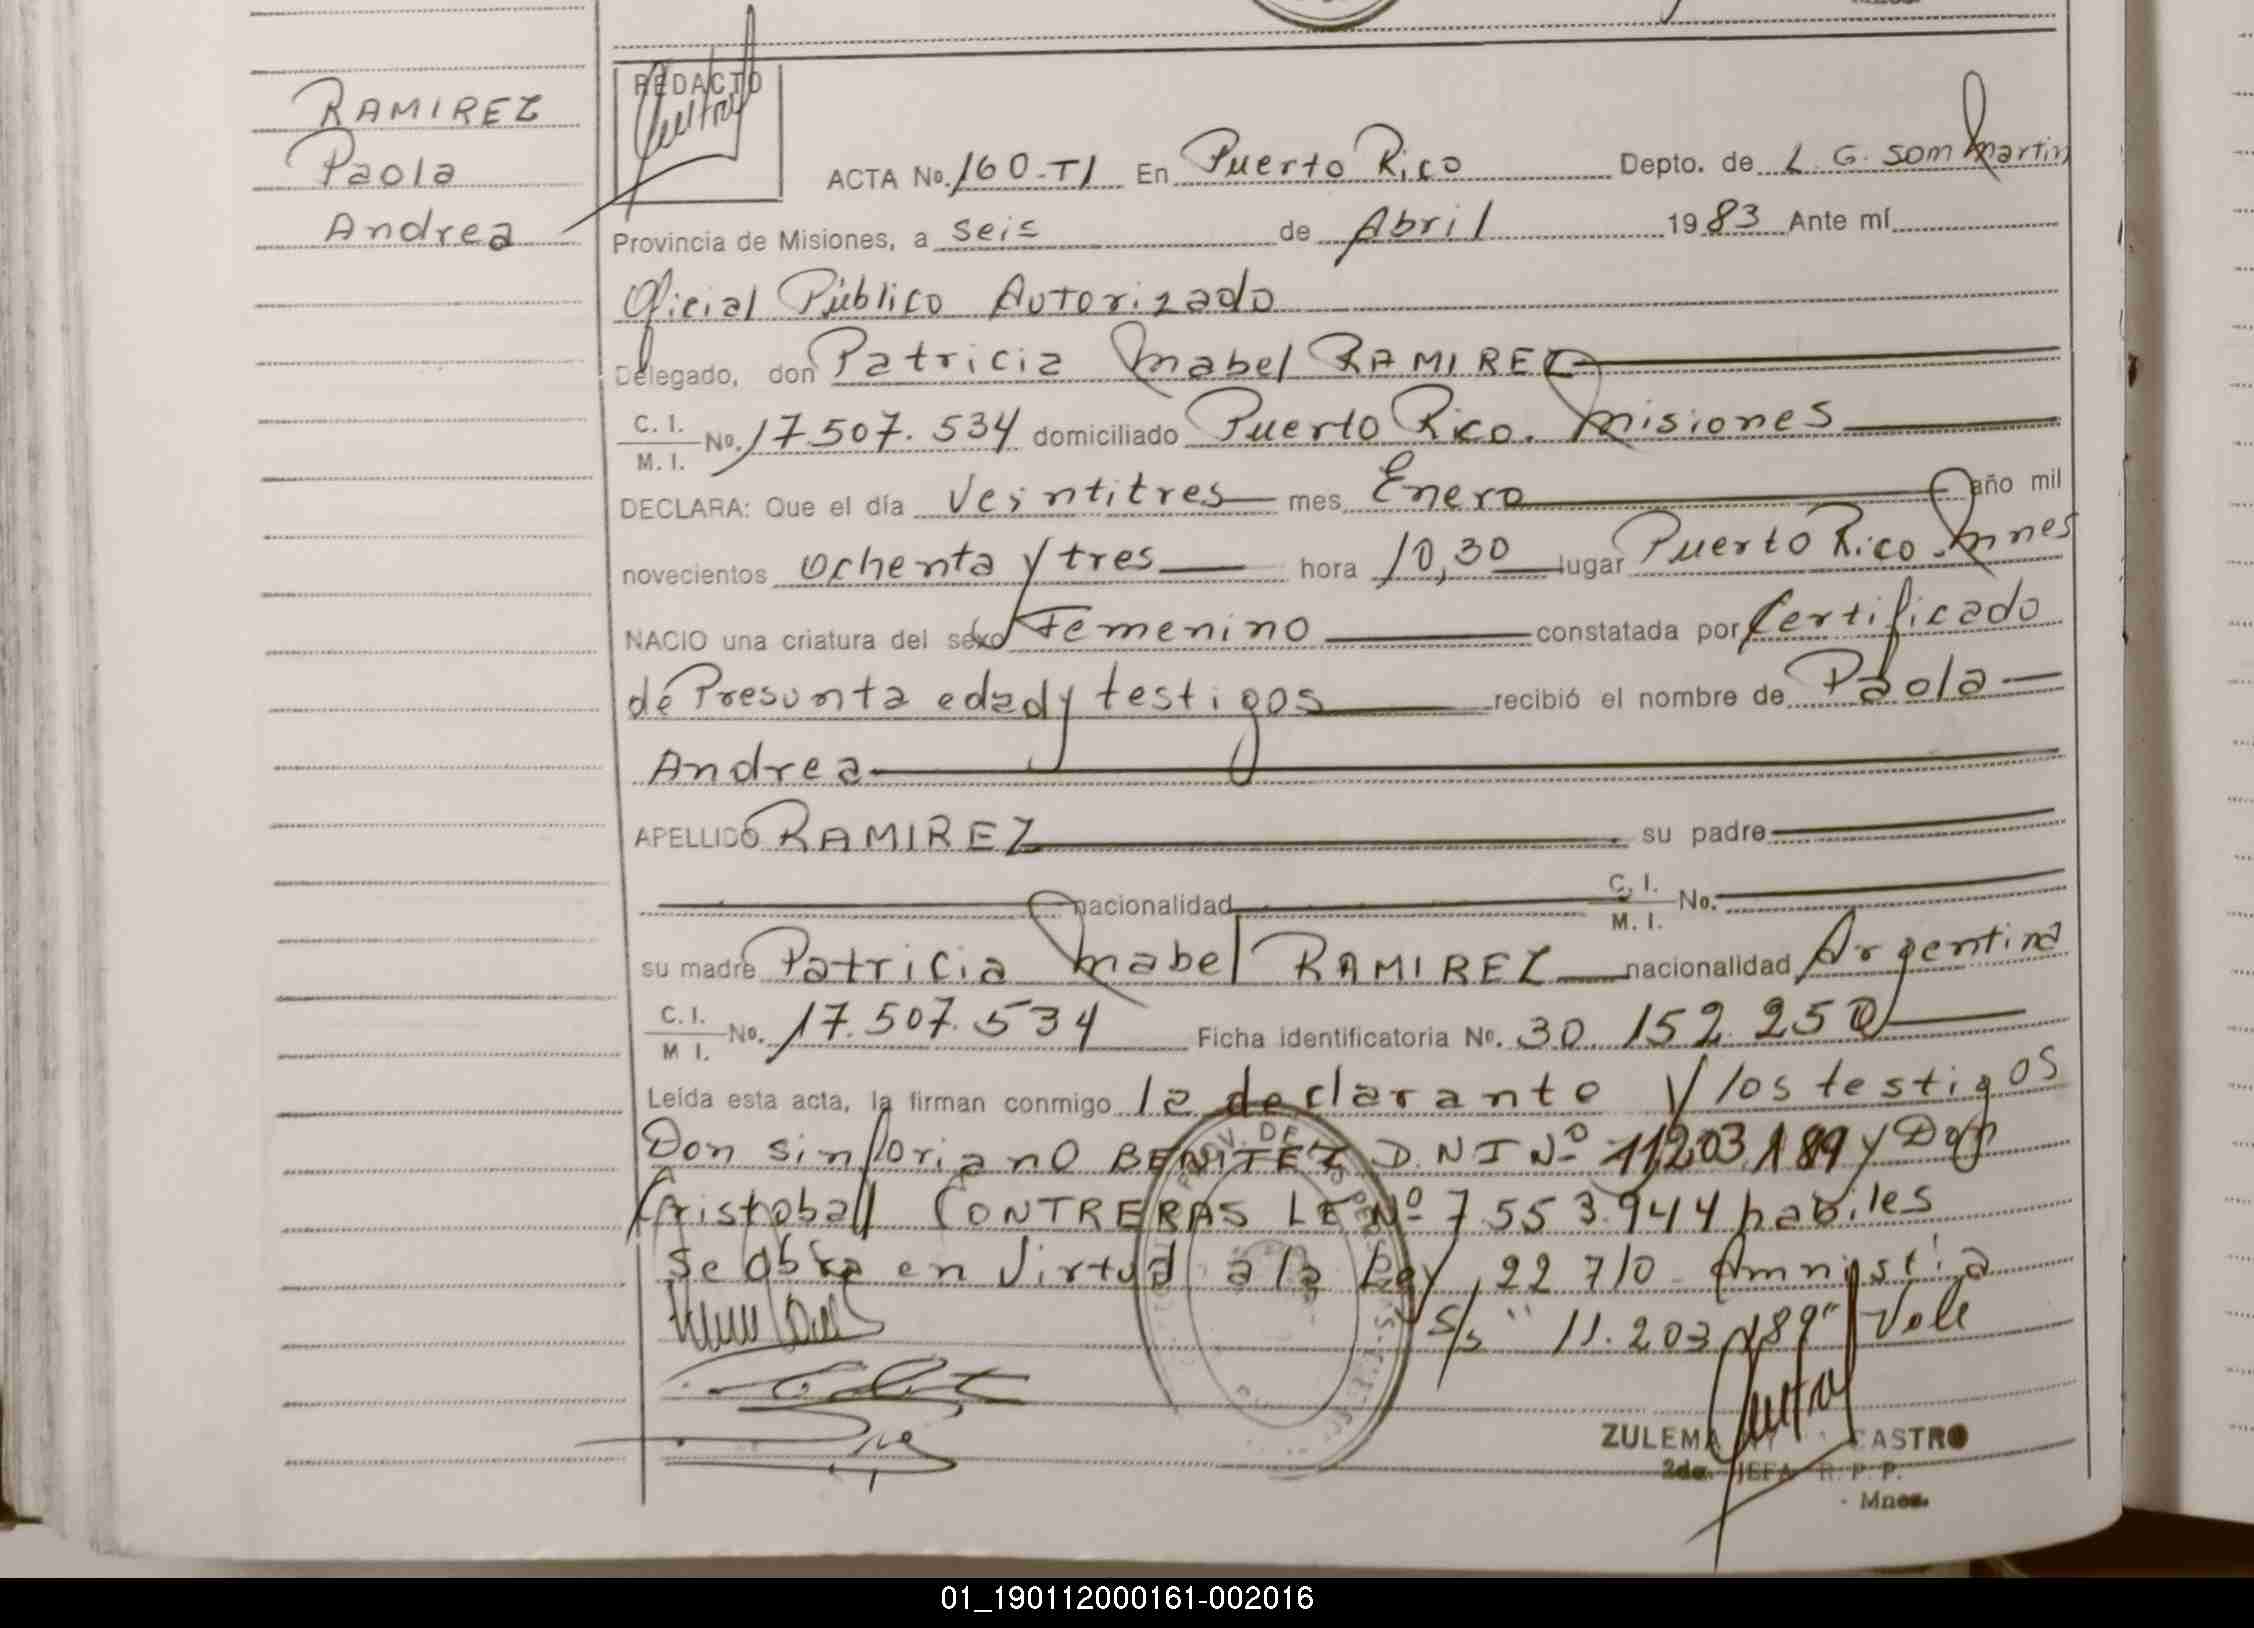 RAMIREZ
Paola
Andrea
REDACTO
ACTA No. 160-TI En Puerto Rico Depto. de L. G. San Martin
Provincia de Misiones, a seis de Abril 1983 Ante mí
Oficial Público Autorizado
Delegado, don Patricia Mabel RAMIREZ
C. I.
M. I. No. 17.507.534 domiciliado Puerto Rico. Misiones
DECLARA: Que el día Veintitres mes Enero año mil
novecientos ochenta y tres hora 10,30 lugar Puerto Rico. Mnes
NACIO una criatura del sexo Femenino constatada por Certificado
de Presunta edad y testigos recibió el nombre de Paola
Andrea
APELLIDO RAMIREZ su padre
nacionalidad C. I.
M. I. No.
su madre Patricia Mabel RAMIREZ nacionalidad Argentina
C. I.
M I. No. 17.507.534 Ficha identificatoria No. 30.152.250
Leída esta acta, la firman conmigo la declarante y los testigos
Don sinforiano BENITEZ D.N.I Nº 11203.189 y Don
Cristobal CONTRERAS LE Nº 7553.944 habiles
se obra en virtud a la Ley 22710 Amnistia
S/s " 11.203.189" Vale
PROV. DE
ZULEMA CASTRO
2da. JEFA R. P. P.
Mnes.
01_190112000161-002016